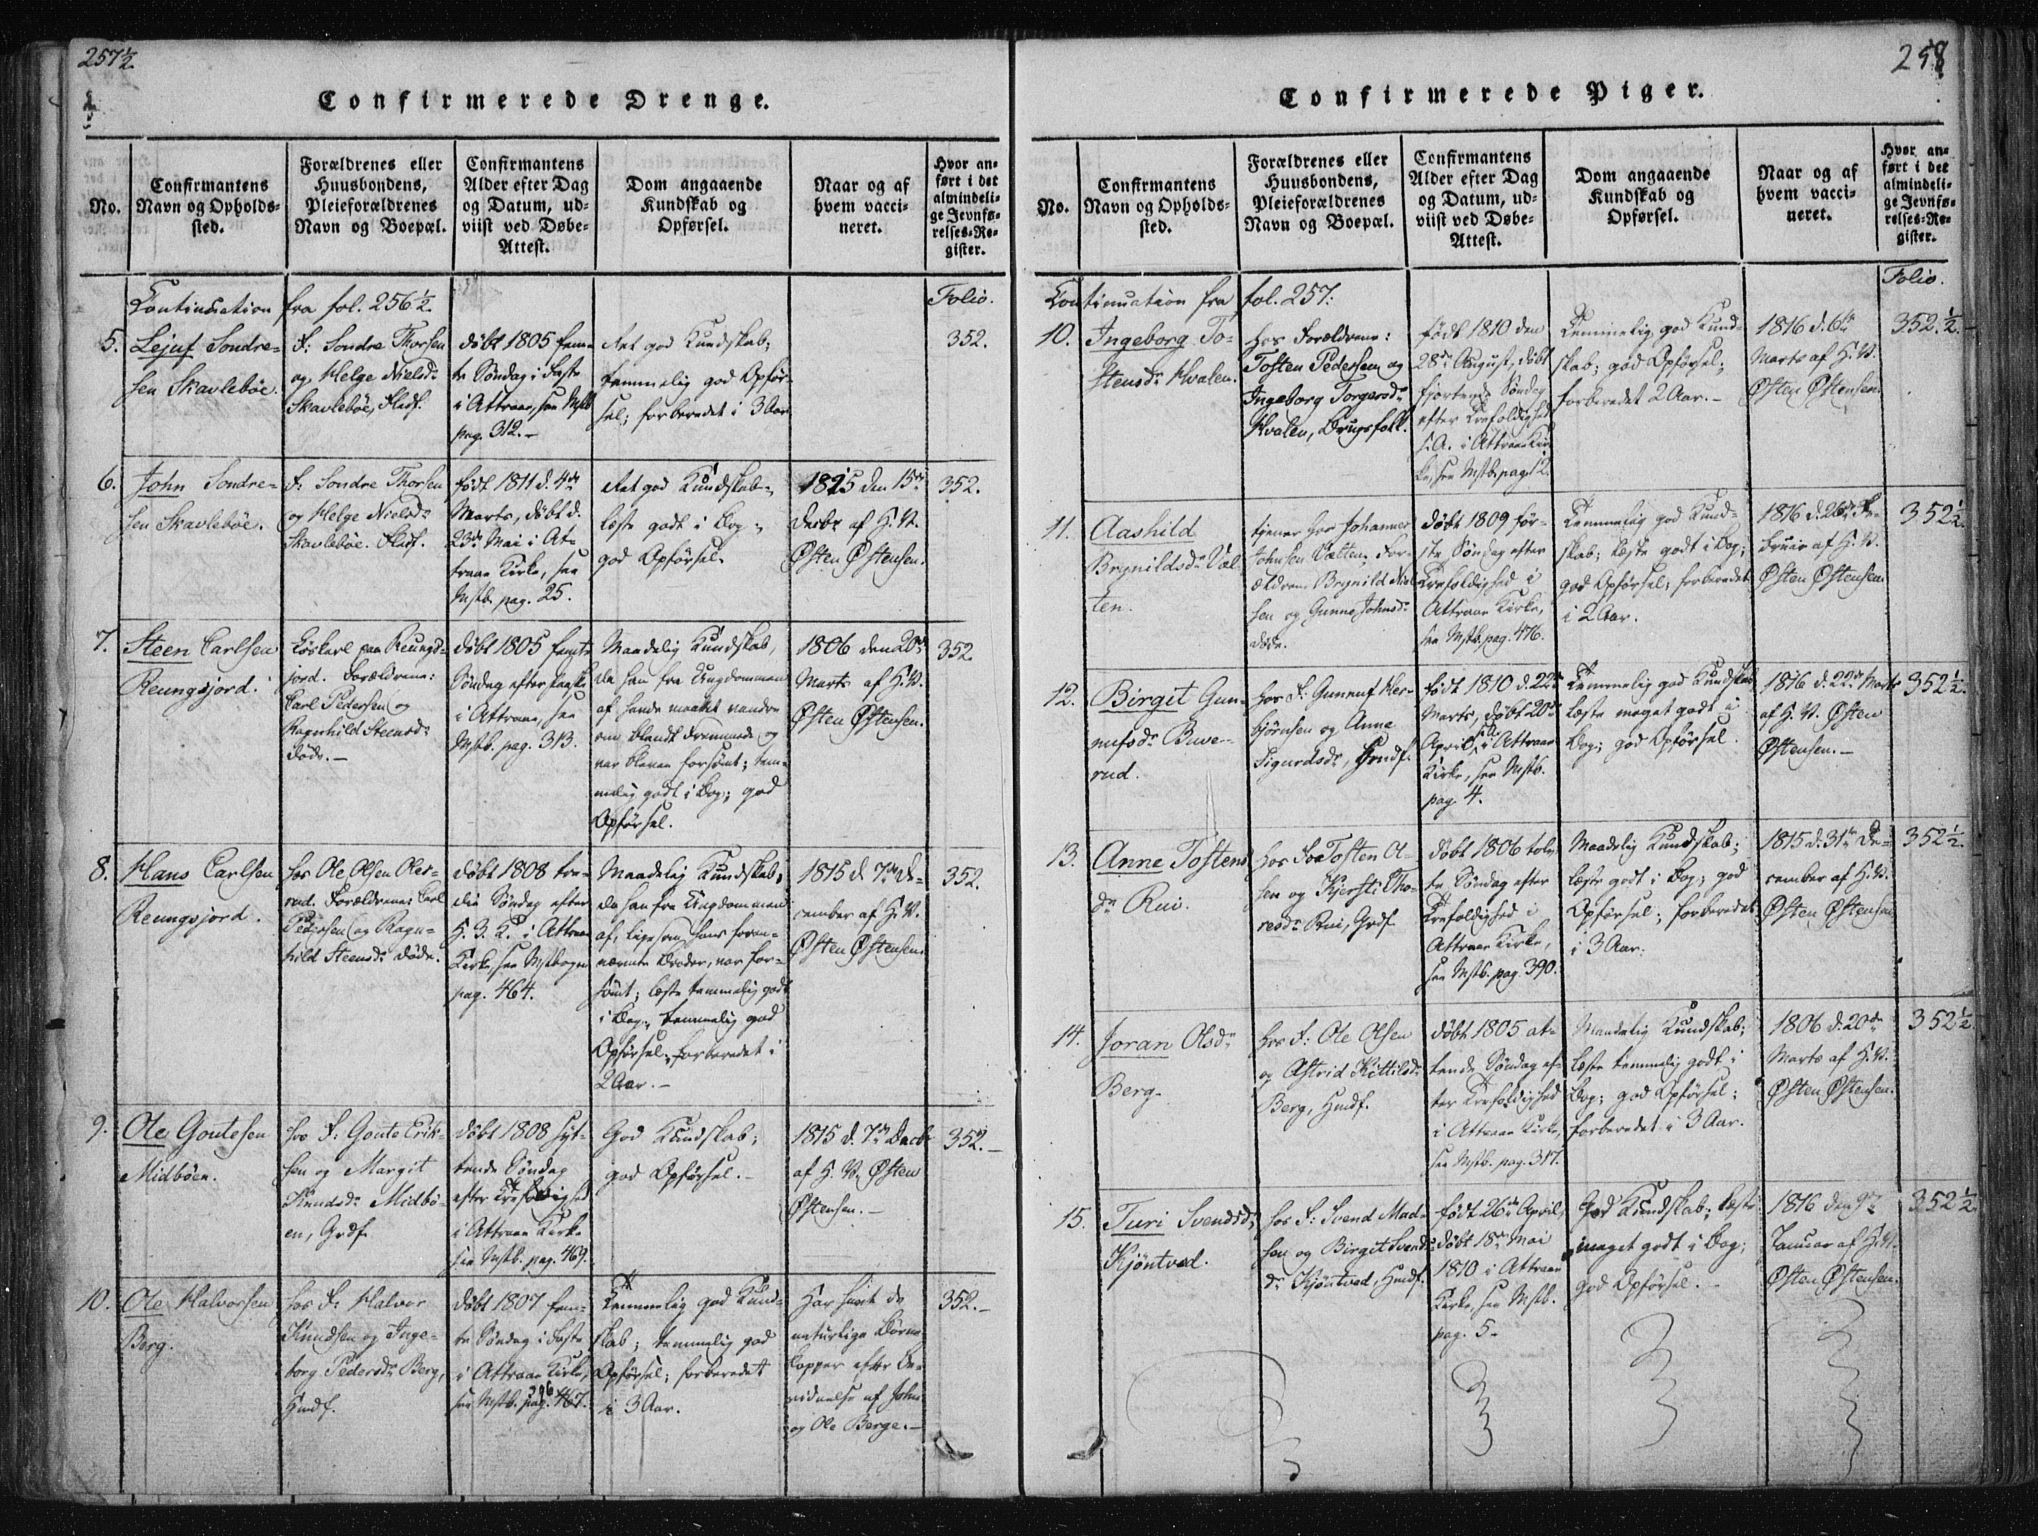 257½.
Confirmerede Drenge.
No.
Confirmantens
Navn og Opholds-
sted.
Forældrenes eller
Huusbondens,
Pleieforældrenes
Navn og Boepæl.
Confirmantens
Alder efter Dag
og Datum, ud-
viist ved Døbe-
Attest.
Dom angaaende
Kundskab og
Opførsel.
Naar og af
hvem vacci-
neret.
Hvor an-
ført i det
almindeli-
ge Jevnfø-
relses-Re-
gister.
Continuation fra fol. 256½.
Folio.
5.
Lejuf Sondre-
sen Skavlebøe.
F: Sondre Thorsen
og Helge Nielsdr
Skavlebøe,
døbt 1805 fem-
te Søndag i Faste
i Attraae, see Mstb.
pag. 312.-
Ret god Kundskab;
temmelig god Opfør-
sel; forberedet i 3 Aar
352.
6.
John Sondre-
sen Skavlebøe.
F: Sondre Thorsen
og Helge Nielsdr
Skavlebøe.
født 1811 d. 4de
Marts, døbt d.
23de Mai i At-
traae Kirke, see
Mstb. pag. 25.
Ret god Kundskab,
læste godt i Bog;
god Opførsel.
1815 den 15de
Decbr af H. W.
Østen Østensen.
352.
7.
Steen Carlsen
Reungsjord.
Løskarl paa Reungs-
jord. Forældrene:
Carl Pedersen og
Ragnhild Steensdr
døde.-
døbt 1805 femte
Søndag efter Paaske
i Attraae, see
Mstb. pag. 313.
Maadelig Kundskab,
da han fra Ungdommen
af havde maattet vandre
om blandt Fremmede og
var bleven forsømt; tem-
melig godt i Bog; god
Opførsel.
1806 den 20de
Marts af H. W.
Østen Østensen.
352.
8.
Hans Carlsen
Reungsjord.
hos Ole Olsen
Forældrene: Carl
Pedersen og Ragn-
hild Steensdr døde.
døbt 1808 tre-
die Søndag efter
H. 3. K. i Attraae
Kirke, see Mstbogen
pag. 464.
Maadelig Kundskab,
da han fra Ungdommen
af, ligesom hans foran-
nævnte Broder, var for-
sømt; læste temmelig godt
i Bog; temmelig god
Opførsel; forberedet i
2 Aar.-
1815 d. 7de De-
cember af H. W.
Østen Østensen.
352.
9.
Ole Goutesen
Midbøen.
hos F: Goute Erik-
sen og Margit
Knudsdr Midbø-
en, Grdf.
døbt 1808 syt-
tende Søndag
efter Trefoldighed
i Attraae Kirke
see Mstb. pag. 469.
God Kundskab;
god Opførsel.-
1815 d. 7de Decbr
af H. W. Østen
Østensen.-
352.-
10.
Ole Halvorsen
Berg.
hos F: Halvor
Knudsen og Inge-
borg Pedersdr Berg,
Hmdf.
døbt 1807 fem-
te Søndag i Faste
i Attraae Kirke,
see Mstb. pag. 467.
396
Temmelig god Kund-
skab; temmelig god
Opførsel; forberedet
i 3 Aar.
Har havt de
naturlige Børne-
kopper efter Be-
vidnelse af John
og Ole Berge.-
352.-
258.
Confirmerede Piger.
No.
Confirmantens
Navn og Opholds-
sted.
Forældrenes eller
Huusbondens,
Pleieforældrenes
Navn og Boepæl.
Confirmantens
Alder efter Dag
og Datum, ud-
viist ved Døbe-
Attest.
Dom angaaende
Kundskab og
Opførsel.
Naar og af
hvem vacci-
neret.
Hvor an-
ført i det
almindeli-
ge Jevnfø-
relses-Re-
gister.
Folio.
Continuation fra fol. 257:
10.
Ingeborg To-
stensdr Hvalen.
Hos Forældrene:
Tosten Pedersen og
Ingeborg Torgersdr
Hvalen, Brugsfolk.
født 1810 den
28de August, døbt
fjortende Søndag
efter Trefoldighed
s. A. i Attraae Kir-
ke, see Mstb. pag. 12.
Temmelig god Kund-
skab; god Opførsel;
forberedet 2 Aar.-
1816 d. 6te
Marts af H. W.
Østen Østensen.
352.½.-
11.
Aashild
Brynildsdr Væl-
ten.
tjener hos Johannes
Johnsen Vælten; For-
ældrene Brynild Niel-
sen og Gunne Johnsdr
døde.
døbt 1809 før-
ste Søndag efter
Trefoldighed i
Attraae Kirke,
see Mstb. pag. 476.
Temmelig god Kund-
skab; læste godt i Bog;
god Opførsel; forberedet
i 2 Aar.
1816 d. 26de Fe-
bruar af H. W.
Østen Østensen.
352½.
12.
Birgit Gun-
nufsdr Buve-
rud.
hos F: Gunnuf Her-
bjørnsen og Anne
Sigurdsdr,
født 1810 d. 22de
Marts, døbt 20de
April s. A. i Attraae
Kirke, see Mstb.
pag. 4.
Temmelig god Kundskab
læste meget godt i
Bog; god Opførsel.
1816 d. 22de Marts
af H. W. Østen
Østensen.-
352½.
13.
Anne Tostens
dr Rui.
hos Tosten O-
sen og Kjersti Tho-
resdr Rui, Grdf.
døbt 1806 tolv-
te Søndag efter
Trefoldighed i
Attraae Kirke,
see Mstb. pag. 390.
Maadelig Kundskab;
læste godt i Bog; god
Opførsel; forberedet
i 3 Aar.
1815 d. 31te De-
cember af H. W.
Østen Østensen
352½.
14.
Joran Olsdr
Berg.
hos F: Ole Olsen
og Astrid Kittilsdr
Berg, Hmdf.
døbt 1805 at-
tende Søndag ef-
ter Trefoldighed
i Attraae Kirke,
see Mstb. pag. 317.
Maadelig Kundskab;
læste temmelig godt i
Bog; god Opførsel;
forberedet i 3 Aar.
1806 d. 20de
Marts af H. W.
Østen Østensen.
352½.
15.
Turi Svendsdr
Kjøntved.
hos F: Svend Mad-
sen og Birgit Svends
dr Kjøntved, Hmdf.
født 26de April,
døbt 18de Mai
1810 i Attraae
Kirke, see Mstb.
pag. 5-
God Kundskab; læste
meget godt i Bog;
god Opførsel.-
1816 den 9de
Januar af H. W.
Østen Østensen.
352½.